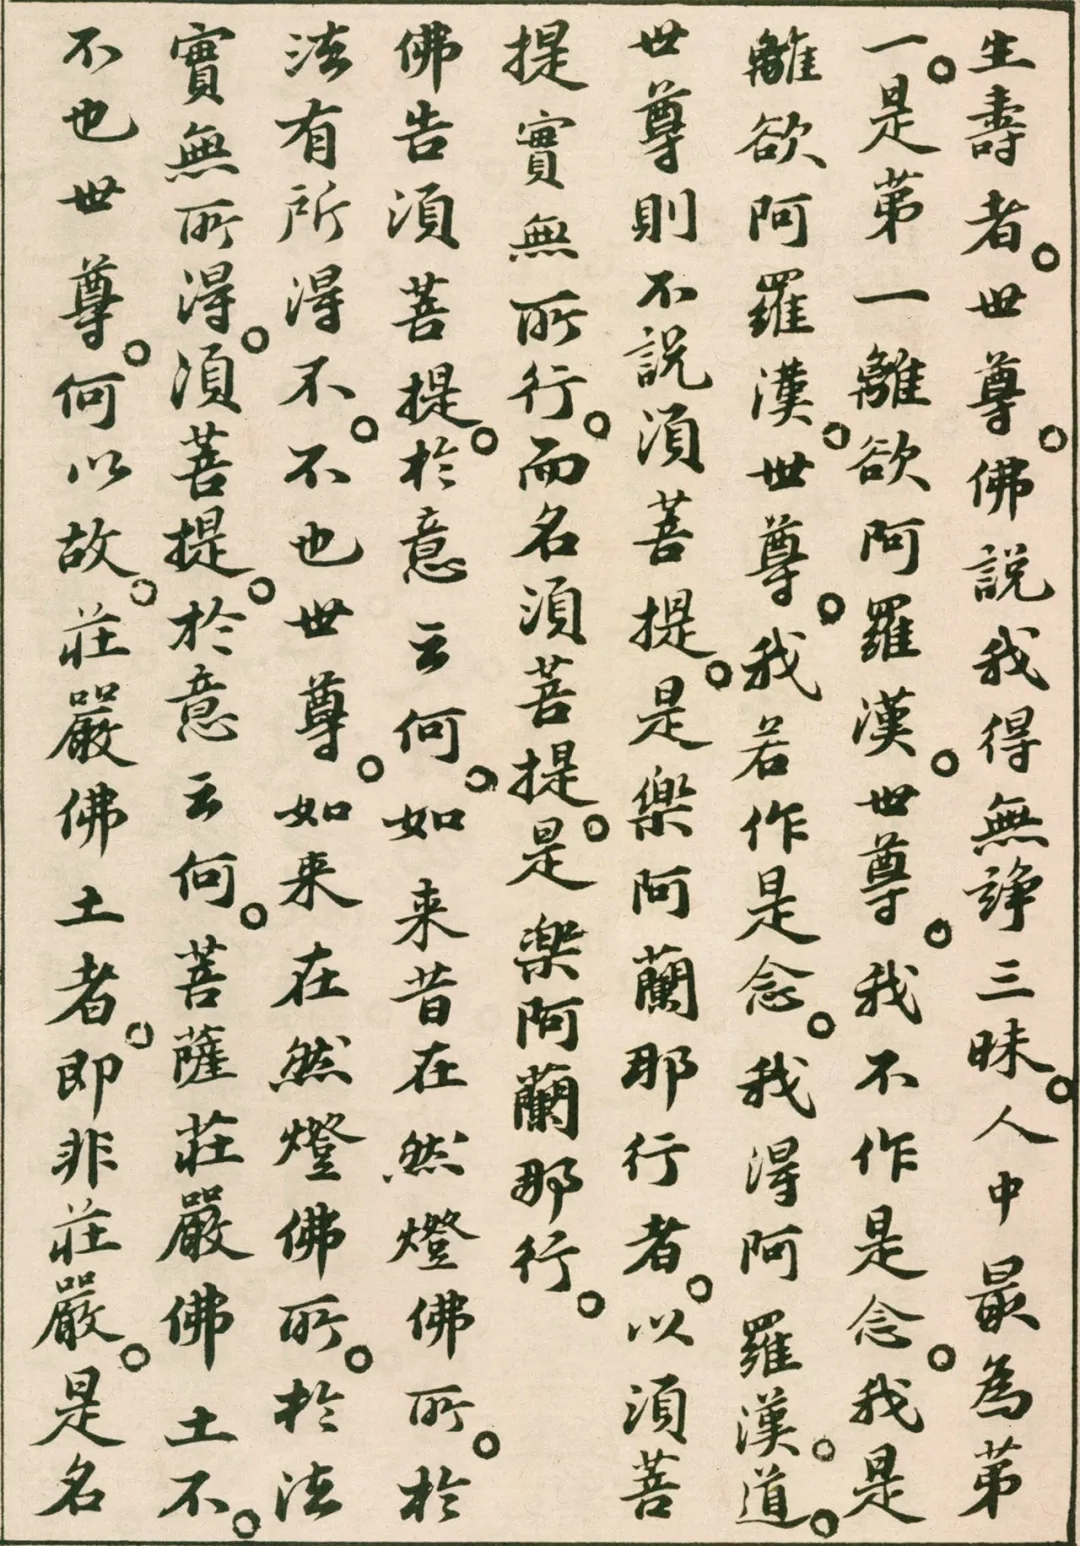 生壽者。世尊。佛說我得無諍三昧。人中最為苐
一。是苐一離欲阿羅漢。世尊。我不作是念。我是
離欲阿羅漢。世尊。我若作是念。我得阿羅漢。道。
世尊則不說須菩提。是樂阿蘭那行者。以須菩
提實無所行。而名須菩提。是樂阿蘭那行。
佛告須菩提。於意云何。如来昔在然燈佛所。於
法有所得不。不也世尊。如来在然燈佛所。於法
實無所得。須菩提。於意云何。菩薩莊嚴佛土不。
不也世尊。何以故。莊嚴佛土者。即非莊嚴。是名